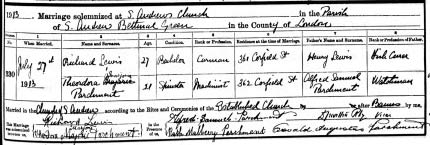 1913. Marriage solemnized at S. Andrews Church in the Parish
of S. Andrew Bethnal Green in the County of London
1 2 3 4 5 6 7 8
When Married. Name and Surname. Age. Condition. Rank or Profession. Residence at the time of Marriage. Father's Name and Surname. Rank or Profession of Father.
330 July 27th 1913
Richard Lewis 27 Bachelor Carman 361 Corfield St Henry Lewis
Theodora Parchment 21 Spinster Machinist 362 Corfield St Alfred Samuel Parchment Watchman
Married in the Church of S. Andrew according to the Rites and Ceremonies of the Established Church by after Banns by me,
This Marriage was solemnized between us, Richard Lewis Parchment in the Presence of us, Alfred Samuel Parchment Vicar
Parchment Oswald Augustus Parchment